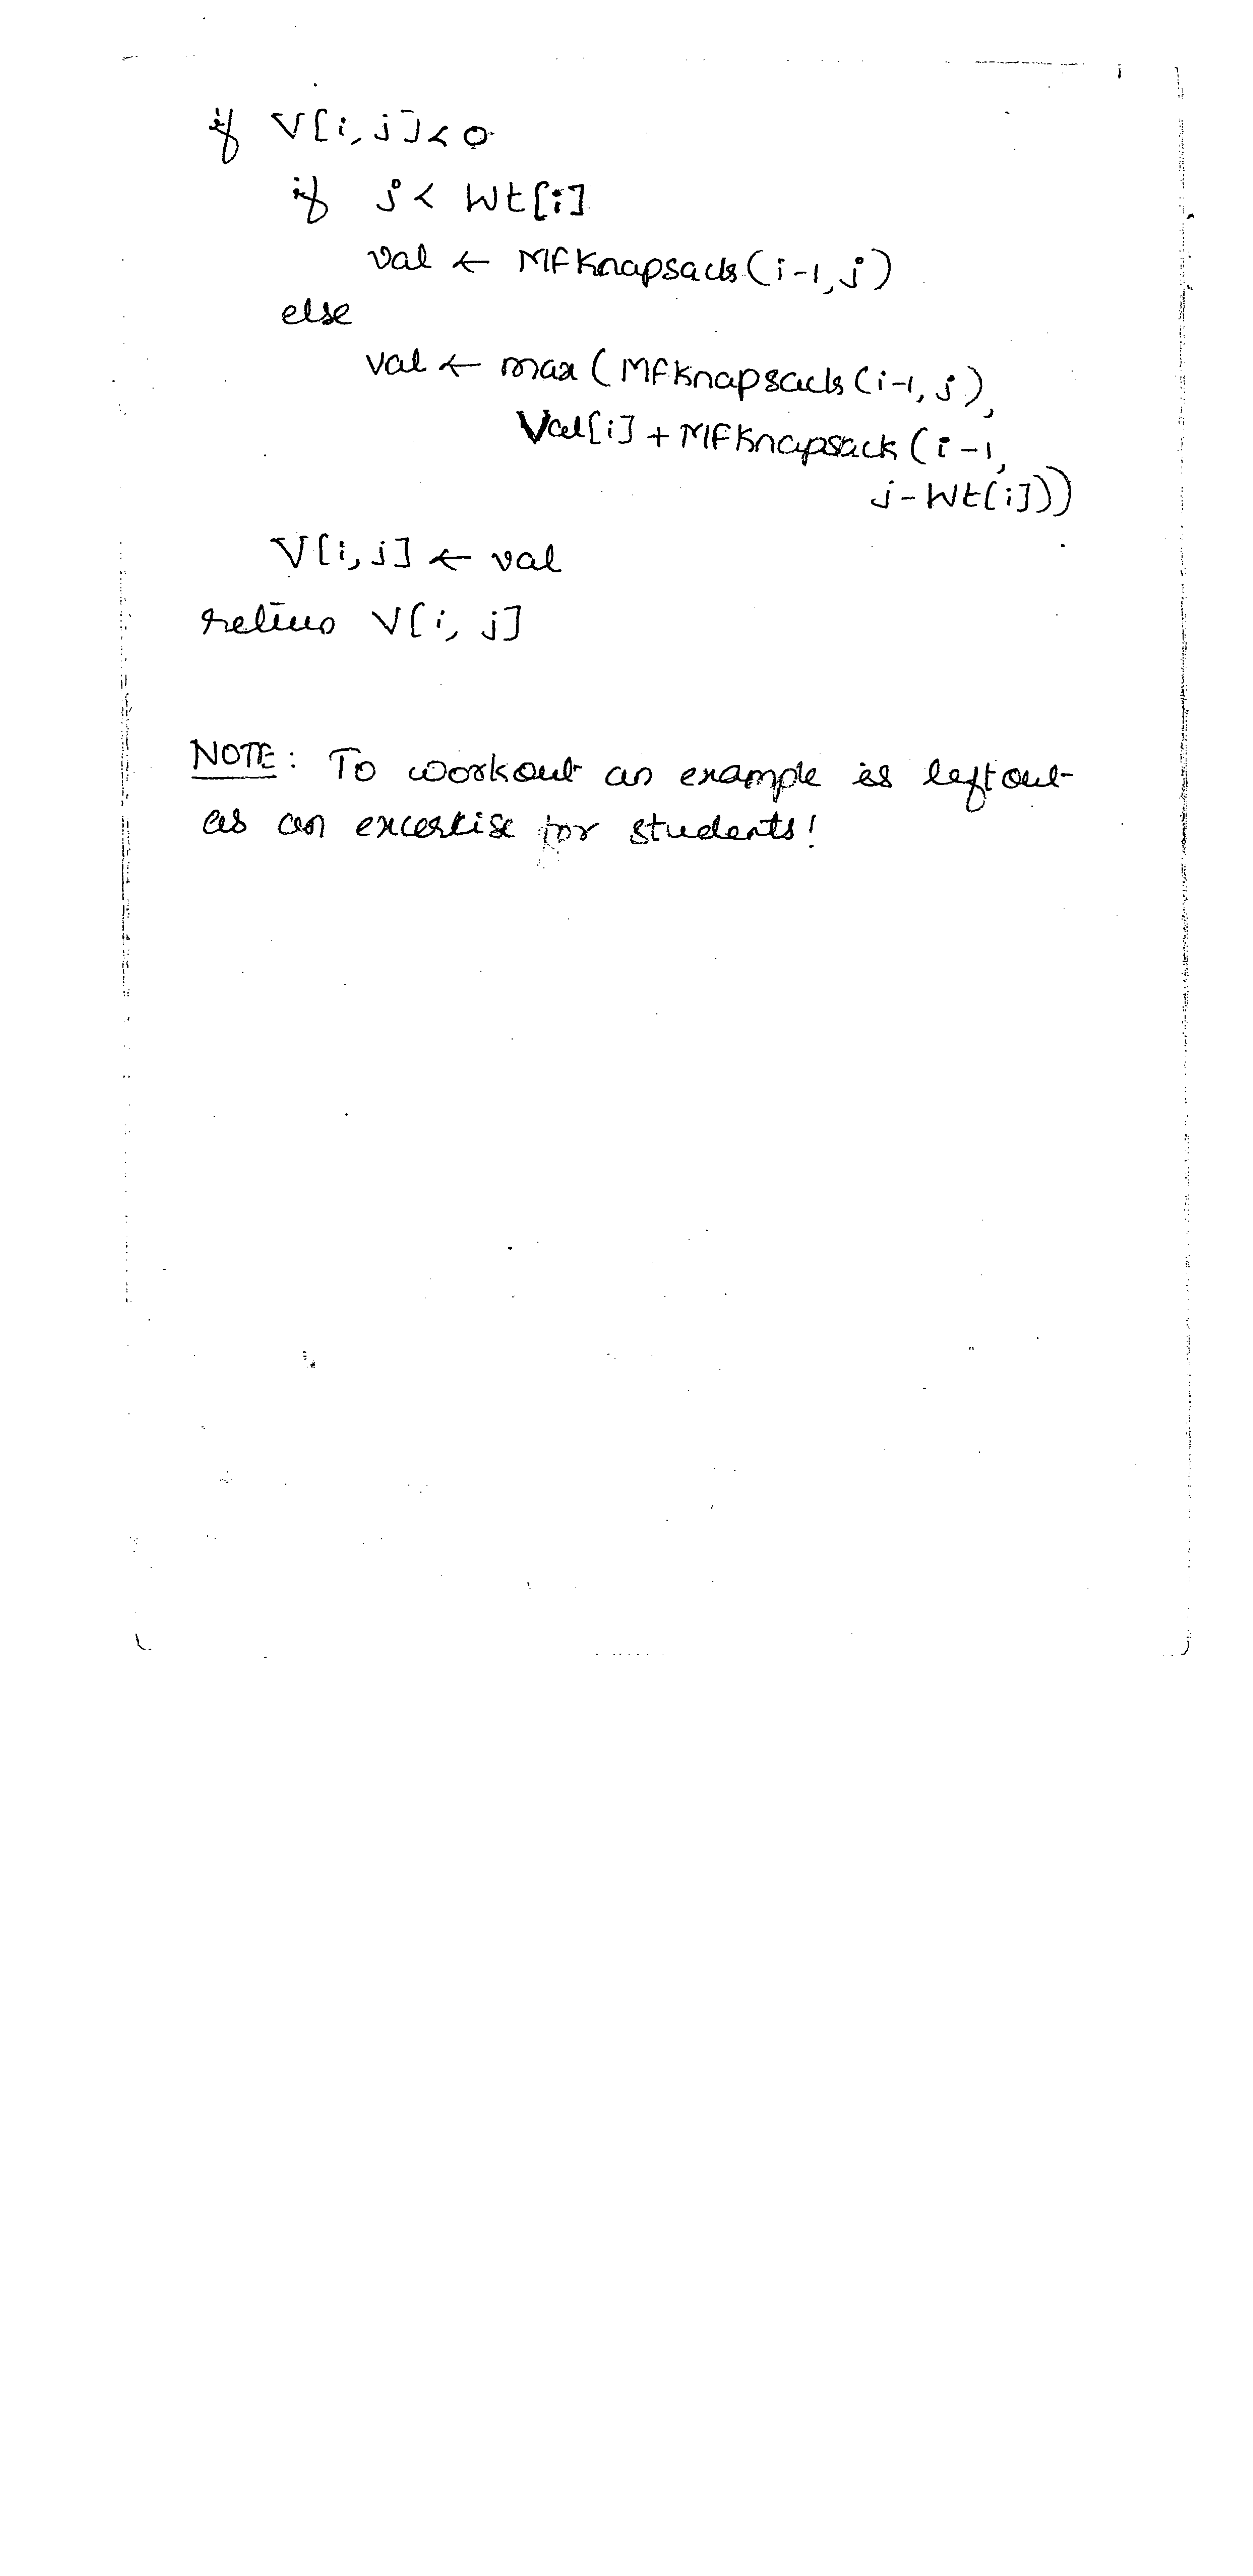 if V[i, j] < 0
if j < Wt[i]
val ← MFKnapsack(i-1, j)
else
val ← max(MFKnapsack(i-1, j),
Val[i] + MFKnapsack(i-1,
j - Wt[i]))
V[i, j] ← val
return V[i, j]
NOTE: To workout an example is leftout
as an excercise for students!